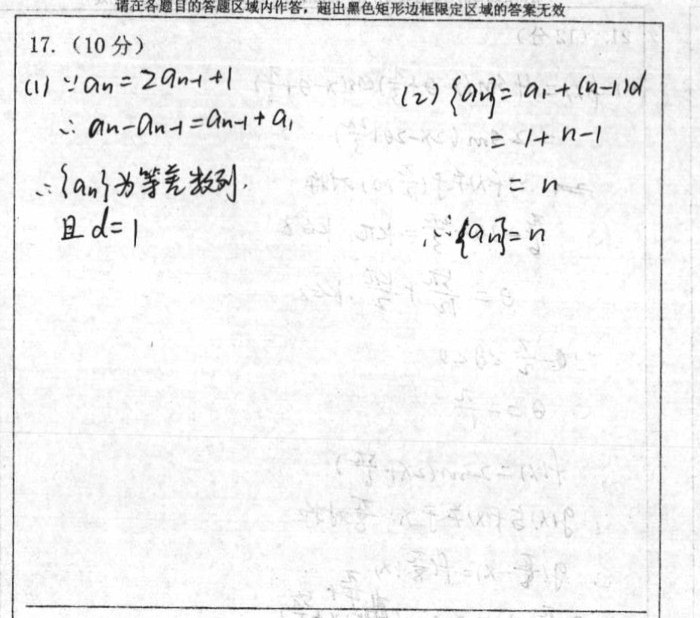 请在各题目的答题区域内作答，超出黑色矩形边框限定区域的答案无效
17.（10分）
(1) ∵an=2an-1+1
∴ an-an-1=an-1+a1
∴{an}为等差数列.
且d=1
(2) {an}=a1+(n-1)d
=1+n-1
=n
∴{an}=n